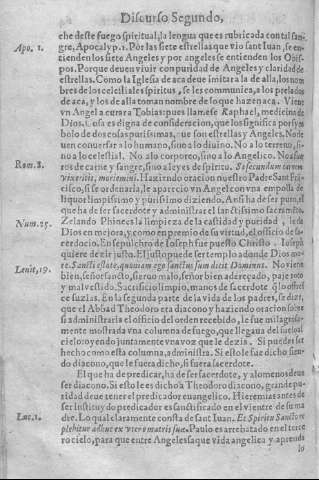 Discurso Segundo,
che deste fuego spiritual, la lengua que es rubricada con tal san-
Apo. 1. gre, Apocalyp. 1. Por las siete estrellas que vio sant Iuan, se en-
tienden los siete Angeles y por angeles se entienden los Obis-
pos. Porque deuen viuir con puridad de Angeles y claridad de
estrellas. Como la Iglesia de aca deue imitar a la de alla, los nom
bres de los celestiales spiritus, se les communica, a los prelados
de aca, y los de alla toman nombre de lo que hazen aca. Viene
vn Angel a curar a Tobias: pues llamese Raphael, medicina de
Dios. Cosa es digna de consideracion, que los significa por sym
bolo de dos cosas purissimas, que son estrellas y Angeles. No de
uen conuersar a lo humano, sino a lo diuino. No a lo terreno, si-
no a lo celestial. No a lo corporeo, sino a lo Angelico. No a fue
Rom. 8. ros de carne y sangre, sino a leyes de spiritu. Si secundum carnem
vixeritis, moriemini. Haziendo oracion nuestro Padre Sant Frã
cisco, si se ordenaria, le aparecio vn Angel con vna empolla de
liquor limpissimo y purissimo diziendo. Ansi ha de ser puro, el
que ha de ser sacerdote y administrar el sanctissimo sacramẽto.
Num. 25. Zelando Phinees la limpieza de la castidad y puridad, le da
Dios en mejora, y como en premio de su virtud, el officio de sa-
cerdocio. En sepulchro de Ioseph fue puesto Christo. Ioseph
quiere dezir justo. El justo puede ser templo adonde Dios mo-
Leuit. 19. re. Sancti estote, quoniam ego sanctus sum dicit Dominus. No viene
bien, señor sancto, sieruo malo, señor bien adereçado, paje roto
y mal vestido. Sacrificio limpio, manos de sacerdote q̃ lo offrez
ce suzias. En la segunda parte de la vida de los padres, se dize,
que el Abbad Theodoro era diacono y haziendo oracion sobre
si administraria el officio del orden recebido, le fue milagrosa-
mente mostrada vna columna de fuego, que llegaua del suelo al
cielo, oyendo juntamente vna voz que le dezia. Si puedes ser
hecho como esta columna, administra. Si esto le fue dicho sien-
do diacono, que le fuera dicho, si fuera sacerdote.
El que ha de predicar, ha de ser sacerdote, y a lo menos deue
ser diacono. Si esto se es dicho a Theodoro diacono, grande pu-
ridad deue tener el predicador euangelico. Hieremias antes de
ser instituydo predicador es sanctificado en el vientre de su ma
Luc. 1. dre. Lo qual claramente consta de sant Iuan. Et Spiritu Sancto re
plebitur adhuc ex vtero matris suæ. Paulo es arrebatado en el terce
ro cielo, para que entre Angeles saque vida angelica y aprenda
lo